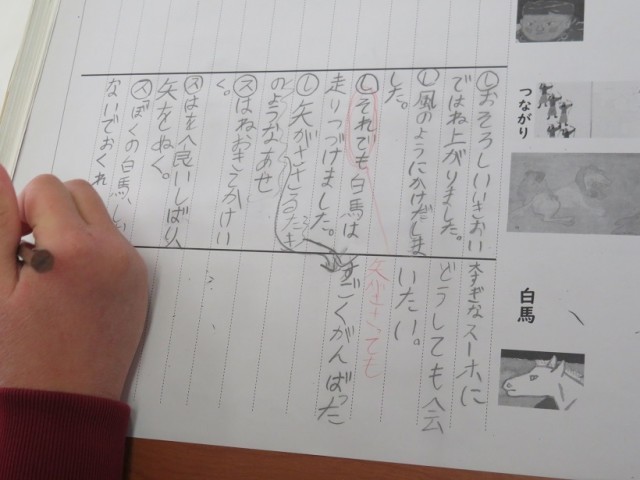 つながり
白馬
し おそろしいいきおい
ではね上がりました。
し 風のようにかけだしま
した。
し それでも白馬は
走りつづけました。
し 矢がささる
のようなあせ
ス はねおきてかけい
く。
ス はを食いしばり、
矢をぬく。
ス ぼくの白馬、し
ないでおくれ
大すきなスーホに
どうしても会
いたい。
矢がささっても
すごくがんばった